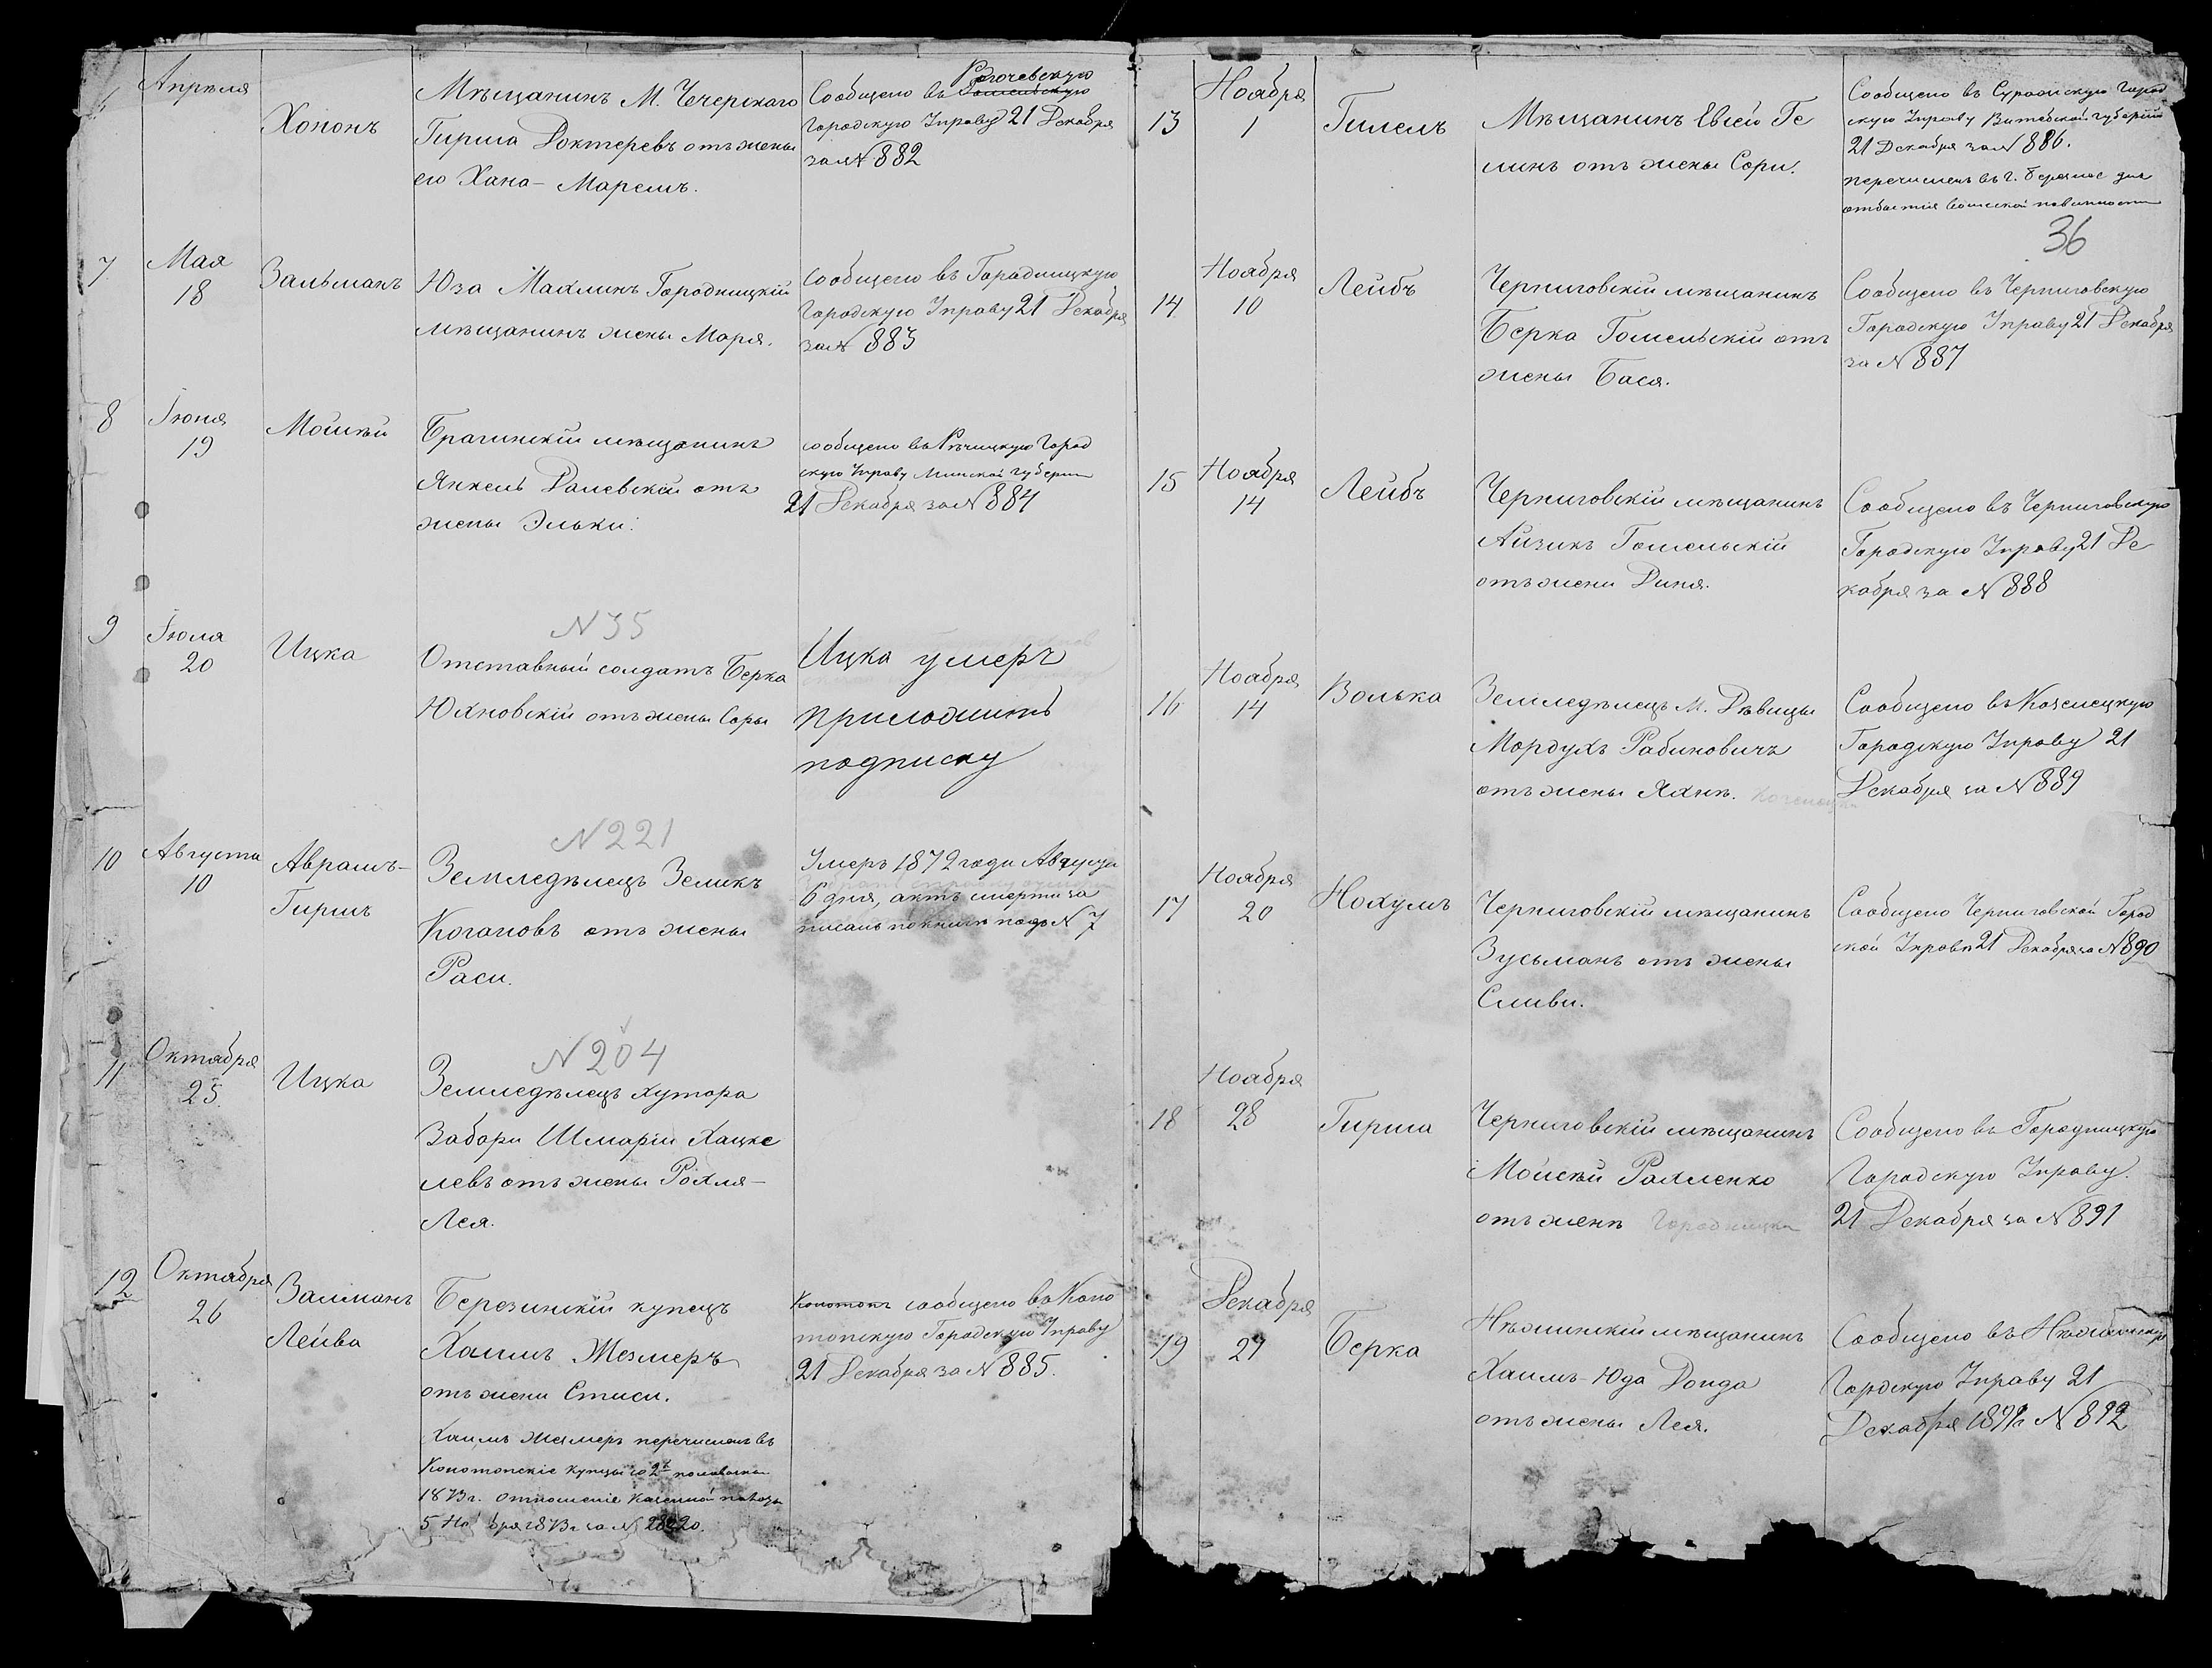 6
Апреля
Хононъ
Мѣщанинъ М. Чечерскаго
Гирша Доктеревъ отъ жены
его Хана-Марємъ.
Рогочевскую
Сообщено въ Гомельскую
Городскую Управу 21 Декабря
за № 882
7
Мая
18
Зальманъ
Юза Махлинъ Городницкій
мѣщанинъ жены Маря.
Сообщено въ Городницкую
Городскую Управу 21 Декабря
за № 883
8
Іюня
19
Мойсѣй
Брагинскій мѣщанинъ
Янкель Ралевскій отъ
жены Эльки.
сообщено въ Рѣчицкую Город
скую Управу Минской губерніи
21 Декабря за № 884
9
Іюля
20
Ицка
N 35
Отставный солдатъ Берка
Юхновскій отъ жены Соры
Ицка умеръ
приложить
подписку
10
Августа
10
Аврамъ-
Гиршъ
N 221
Земледѣлецъ Зеликъ
Когановъ отъ жены
Раси.
Умеръ 1872 года Августа
6 дня, актъ смерти за
писанъ по книгѣ подъ N 7
11
Октября
25.
Ицка
N 204
Земледѣлецъ хутора
Забори Шмарій Хацке
левъ отъ жены Рохля-
Лея.
12
Октября
26
Залманъ
Лейва
Березинскій купецъ
Хаимъ Жезмеръ
отъ жени Стиси.
Хаимъ Жезмеръ перечисленъ въ
Конотопскіе купцы со 2й половины
1873 г. отношеніе Казенной палаты
5 Но бря 1873 г. за №
Конотопъ сообщено въ Коно
топскую Городскую Управу
21 Декабря за № 885.
13
Ноября
1
Гилель
Мѣщанинъ Евсей Ге
линъ отъ жены Сори.
Сообщено въ Суражскую Город
скую Управу Витебской губерніи
21 Декабря за № 886.
перечисленъ въ г. для
отбытія воинской повинности
36
14
Ноября
10
Лейбъ
Черниговскій мѣщанинъ
Берка Гомельскій отъ
жены Бася.
Сообщено въ Черниговскую
Городскую Управу 21 Декабря
за № 887
15
Ноября
14
Лейбъ
Черниговскій мѣщанинъ
Айзикъ Гомельскій
отъ жени Диня.
Сообщено въ Черниговскую
Городскую Управу 21 Де
кабря за № 888
16
Ноября
14
Волька
Земледѣлецъ М. Дѣвицы
Мордухъ Рабиновичъ
отъ жены Яхнѣ.
Сообщено въ Козелецкую
Городскую Управу 21
Декабря за № 889
17
Ноября
20
Нохумъ
Черниговскій мѣщанинъ
Зусьманъ отъ жены
Сливи.
Сообщено Черниговской Город
ской Управѣ 21 Декабря за № 890
18
Ноября
28
Гирша
Черниговскій мѣщанинъ
Мойсѣй Рахленко
отъ женѣ Городницкій
Сообщено въ Городницкую
Городскую Управу.
21 Декабря за № 891
19
Декабря
27
Берка
Нѣжинскій мѣщанинъ
Хаимъ-Юда Донда
отъ жены Лея.
Сообщено въ Нѣжинскую
Гордскую Управу 21
Декабря № 892